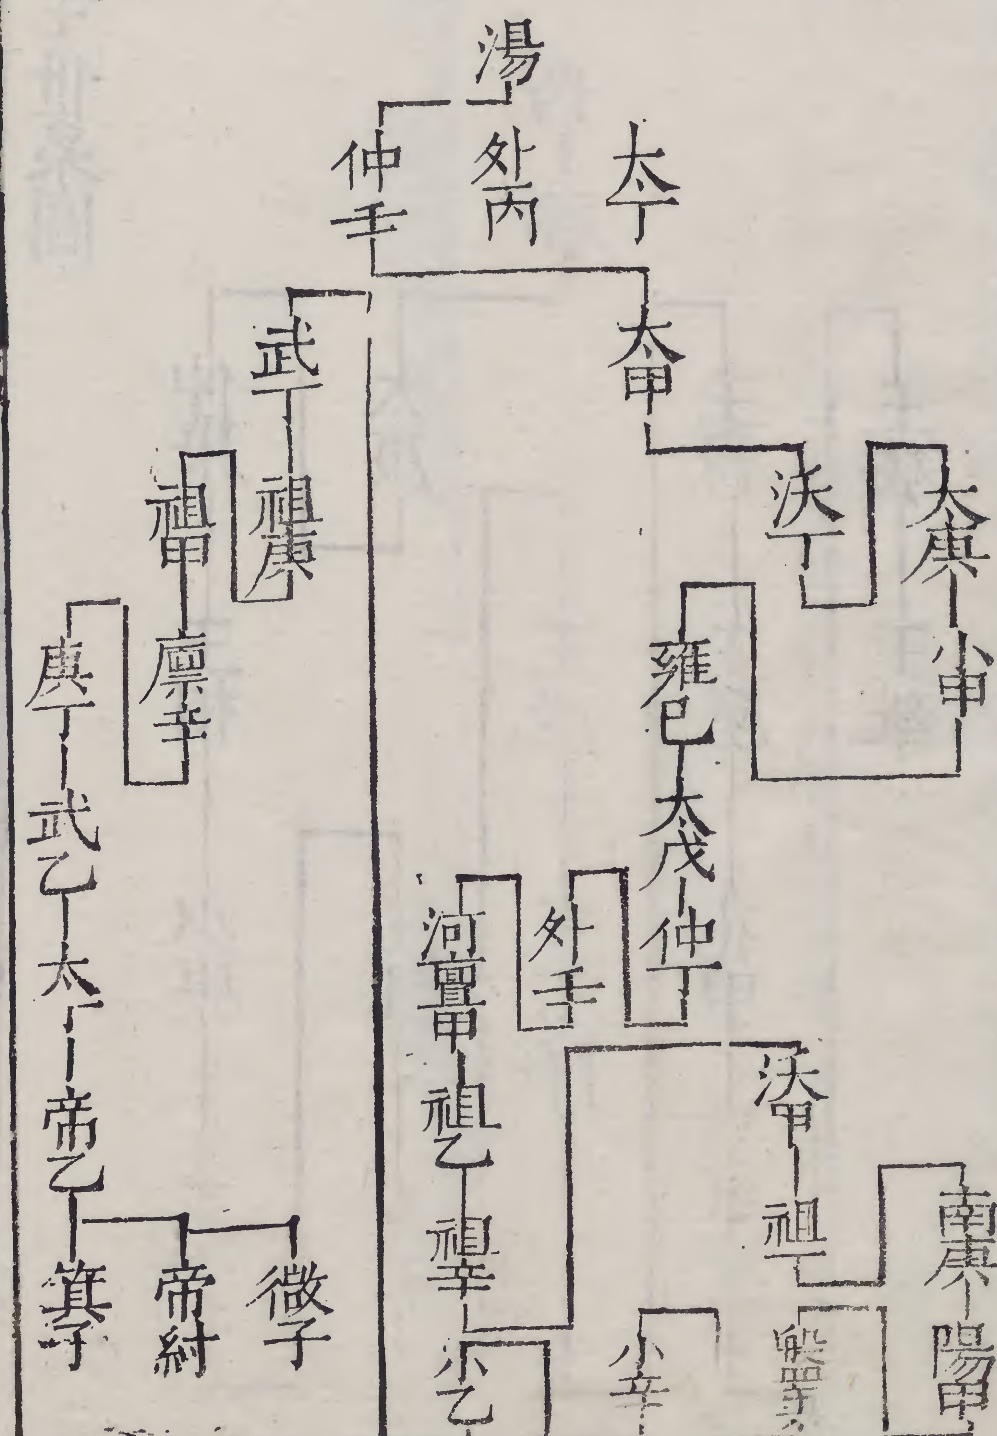 湯
太丁
外丙
仲壬
太甲
沃丁
太庚
小甲
雍巳
太戊
仲丁
外壬
河亶甲
祖乙
祖辛
沃甲
祖丁
南庚
陽甲
小辛
小乙
武丁
祖庚
祖甲
廪辛
庚丁
武乙
太丁
帝乙
微子
帝紂
箕子